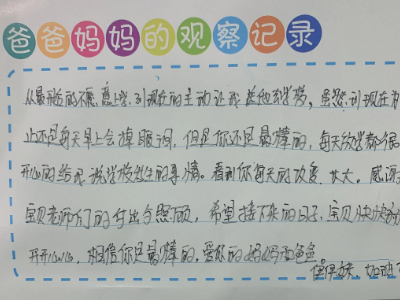 爸爸妈妈的观察记录
从最初的不愿意上学,到现在的主动让我送他去学校,虽然到现在为
止还是每天早上会掉眼泪,但是你还是最棒的,每天放学都很
开心的给我说学校发生的事情。看到你每天的改变、长大。感谢
宝贝老师们的付出与照顾,希望接下来的日子,宝贝快快乐乐
开开心心,相信你是最棒的。爱你的妈妈和爸爸